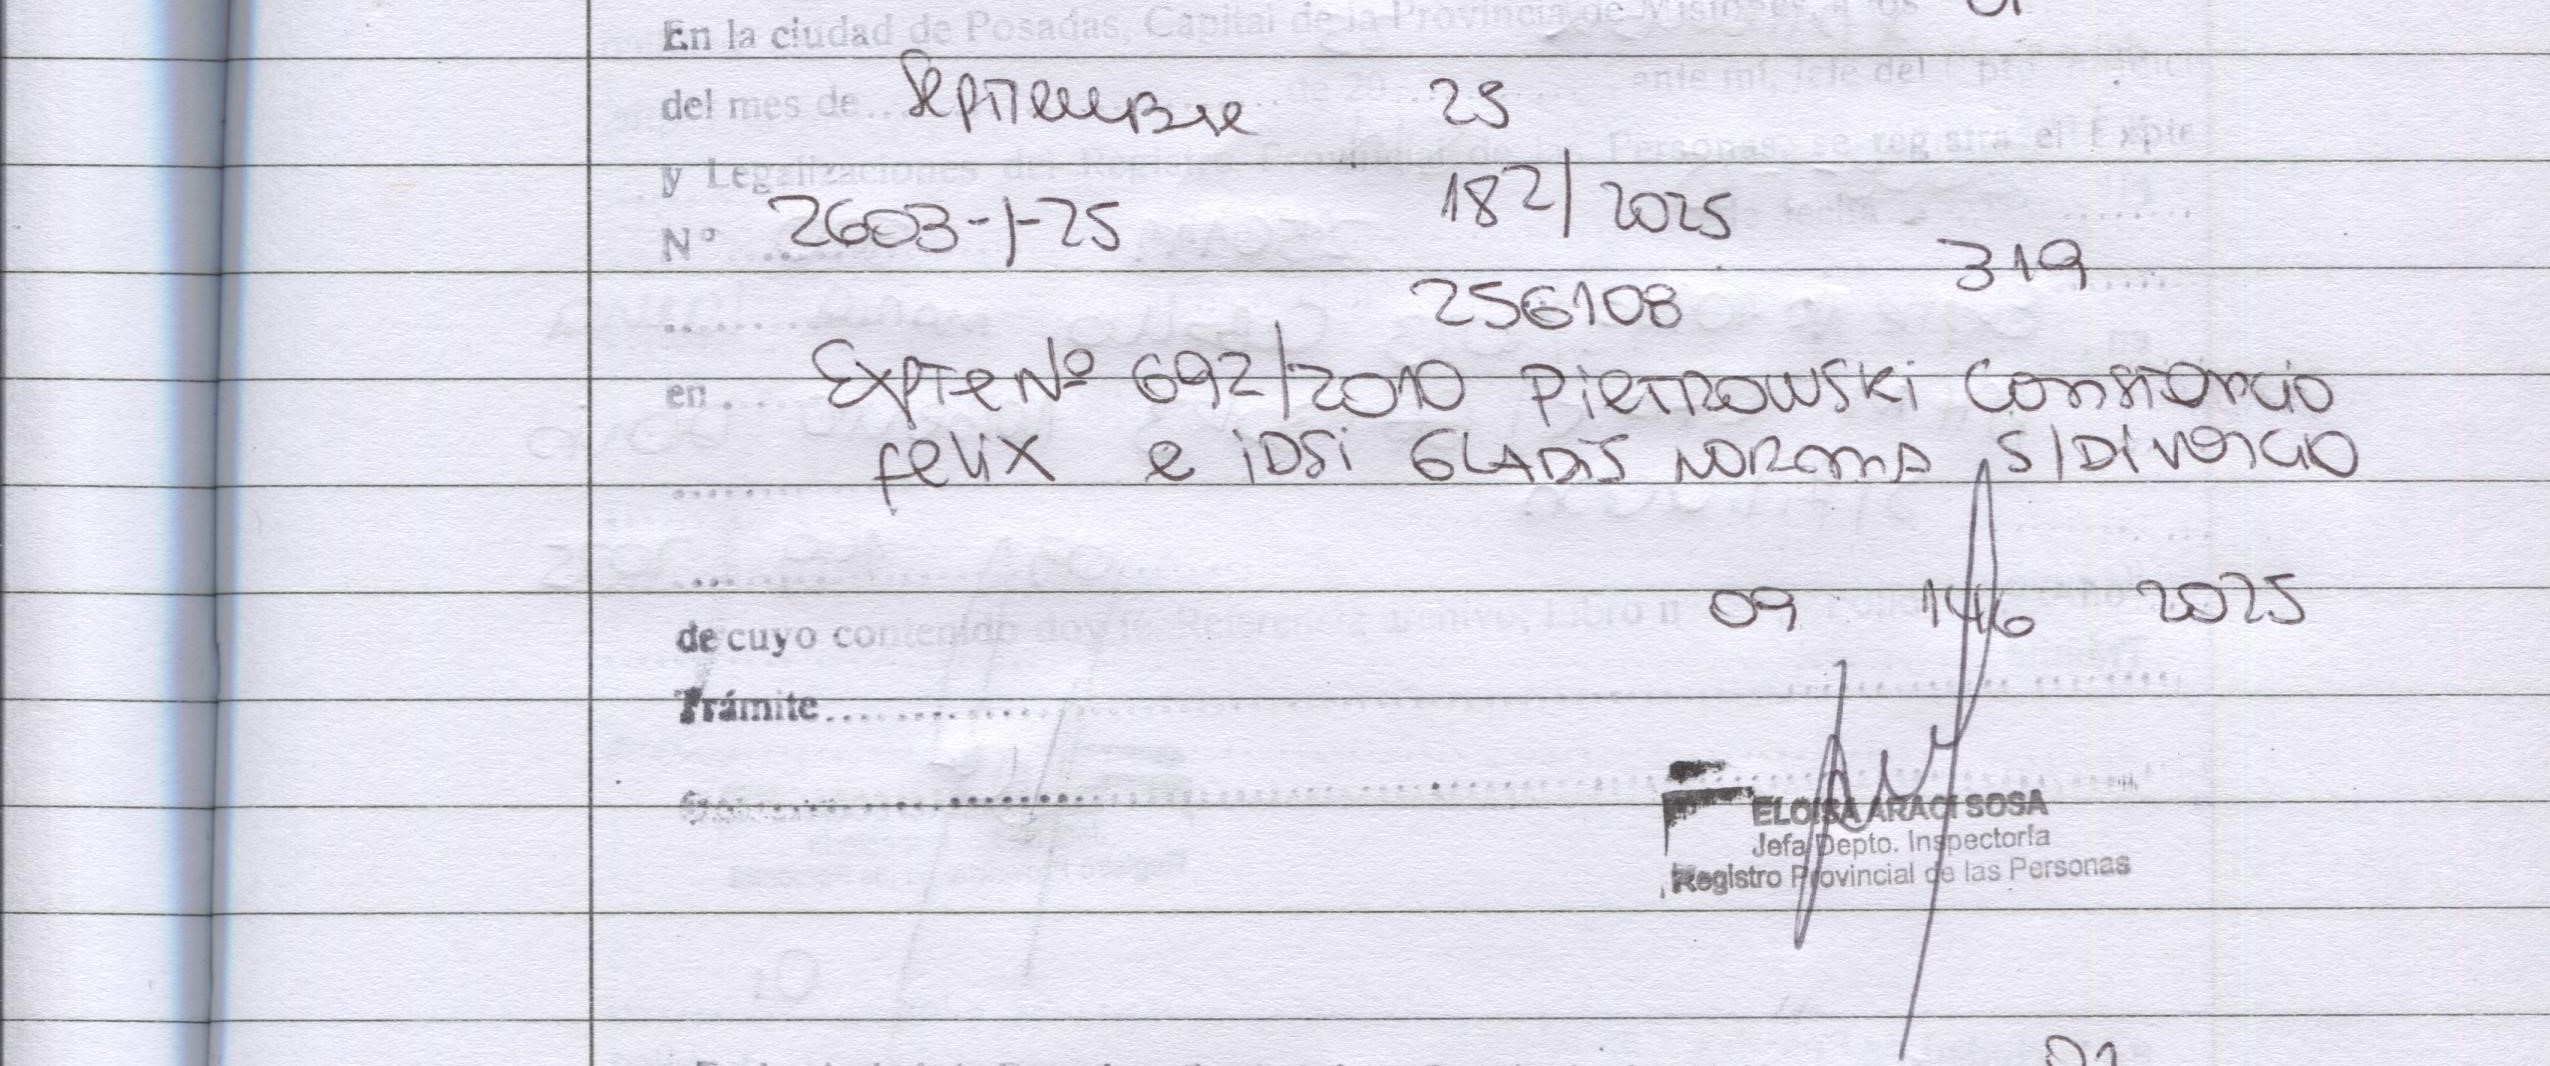 En la ciudad de Posadas, Capital de la Provincia de Misiones, a los 01
del mes de Septiembre de 20 25 ante mí, Jefe del Dpto.
y Legalizaciones del Registro Provincial de las Personas, se registra el Expte
Nº 2603-1-25 182/2025
256108 319
en Expte Nº 692/2010 Pietrowski Constancio
Felix e iDSi GLADiS NORMA S/Divorcio
de cuyo contenido doy fe. Referencia archivo, Libro n 09 146 2025
Trámite
ELOISA ARACI SOSA
Jefa Depto. Inspectoría
Registro Provincial de las Personas
01